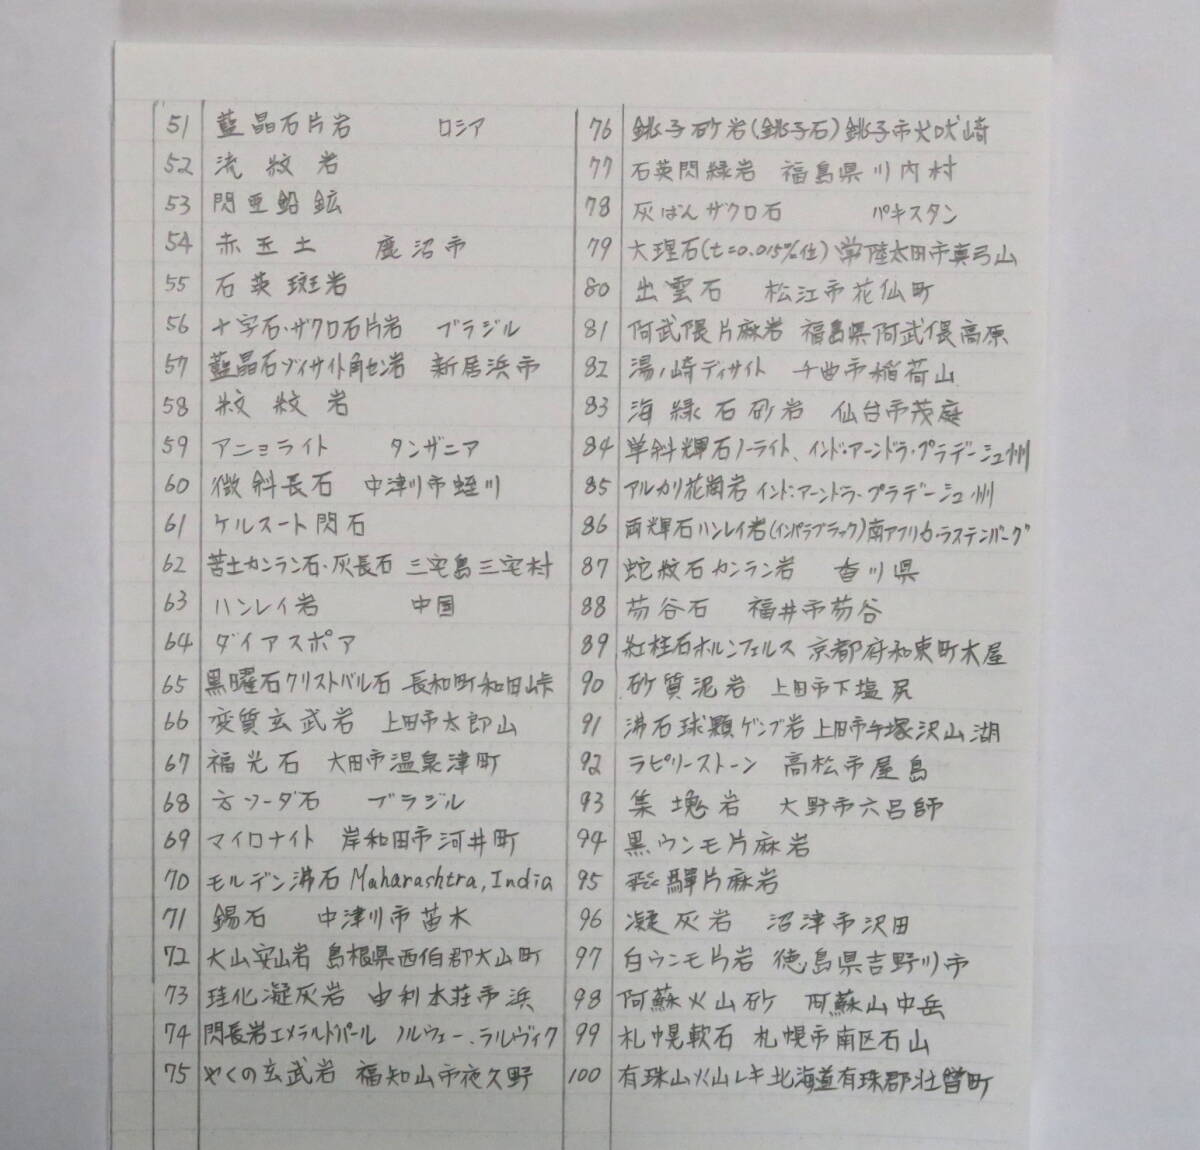 51 藍晶石片岩 ロシア
52 流紋岩
53 閃亜鉛鉱
54 赤玉土 鹿沼市
55 石英斑岩
56 十字石・ザクロ石片岩 ブラジル
57 藍晶石ゾイサイト角セン岩 新居浜市
58 紋岩
59 アニョライト タンザニア
60 微斜長石 中津川市蛭川
61 ケルスート閃石
62 苦土カンラン石・灰長石 三宅島三宅村
63 ハンレイ岩 中国
64 ダイアスポア
65 黒曜石クリストバル石 長和町和田峠
66 変質玄武岩 上田市太郎山
67 福光石 大田市温泉津町
68 方ソーダ石 ブラジル
69 マイロナイト 岸和田市河井町
70 モルデン沸石 Maharashtra, India
71 錫石 中津川市苗木
72 大山安山岩 島根県西伯郡大山町
73 珪化凝灰岩 由利本荘市浜
74 閃長岩エメラルドパール ノルウェー、ラルヴィク
75 やくの玄武岩 福知山市夜久野
76 銚子砂岩(銚子石) 銚子市犬吠崎
77 石英閃緑岩 福島県川内村
78 灰ばんザクロ石 パキスタン
79 大理石(t=0.015%位) 常陸太田市真弓山
80 出雲石 松江市花仙町
81 阿武隈片麻岩 福島県阿武隈高原
82 湯ノ崎デイサイト 千曲市稲荷山
83 海緑石砂岩 仙台市茂庭
84 単斜輝石ノーライト、インド・アーンドラ・プラデーシュ州
85 アルカリ花崗岩 インド:アーンドラ・プラデーシュ州
86 両輝石ハンレイ岩(インパラブラック)南アフリカ・ラステンバーグ
87 蛇紋石カンラン岩 香川県
88 笏谷石 福井市笏谷
89 紅柱石ホルンフェルス 京都府和束町木屋
90 砂質泥岩 上田市下塩尻
91 沸石球顆ゲンブ岩 上田市手塚沢山湖
92 ラピリーストーン 高松市屋島
93 集塊岩 大野市六呂師
94 黒ウンモ片麻岩
95 飛騨片麻岩
96 凝灰岩 沼津市沢田
97 白ウンモ片岩 徳島県吉野川市
98 阿蘇火山砂 阿蘇山中岳
99 札幌軟石 札幌市南区石山
100 有珠山火山レキ 北海道有珠郡壮瞥町